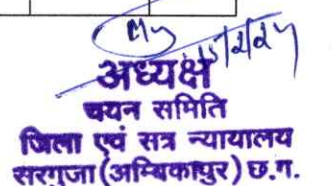 15/2/24
अध्यक्ष
चयन समिति
जिला एवं सत्र न्यायालय
सरगुजा (अम्बिकापुर) छ.ग.